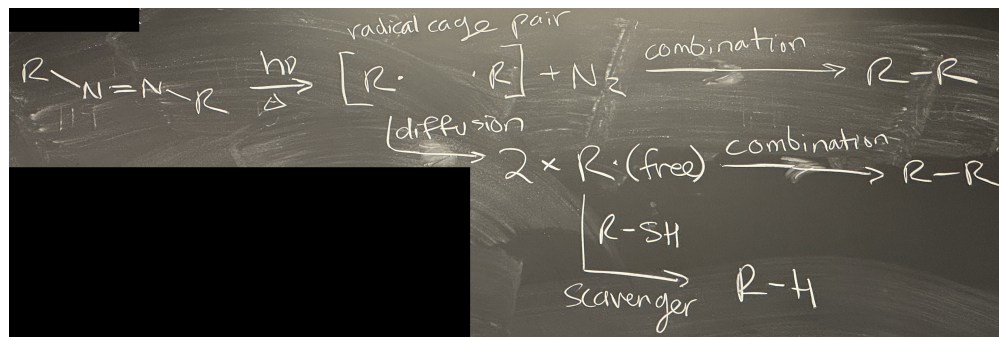 radical cage pair
R-N=N-R hν Δ [R· ·R] + N₂ combination R-R
diffusion 2 × R·(free) combination R-R
R-SH
scavenger R-H